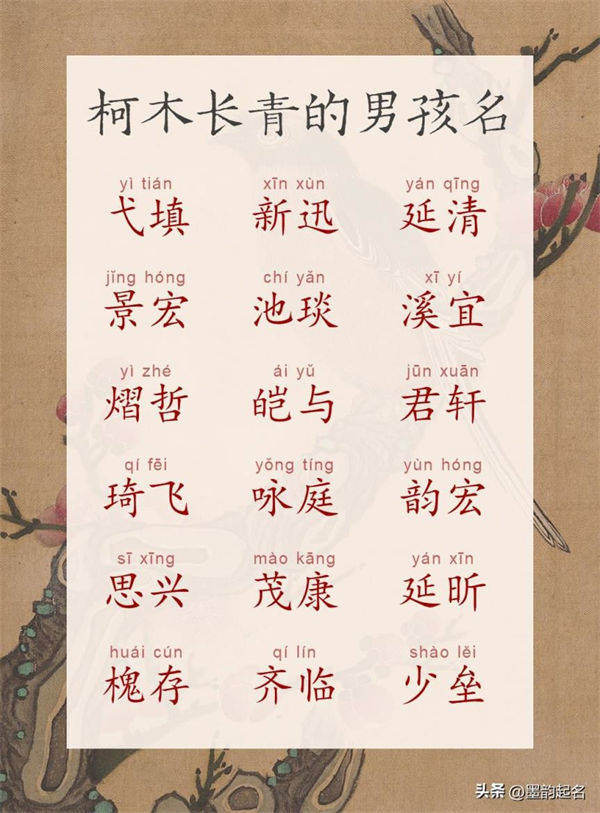 柯木长青的男孩名
yì tián xīn xùn yán qīng
弋填 新迅 延清
jǐng hóng chí yǎn xī yí
景宏 池琰 溪宜
yì zhé ái yǔ jūn xuān
熠哲 皑与 君轩
qí fēi yǒng tíng yùn hóng
琦飞 咏庭 韵宏
sī xīng mào kāng yán xīn
思兴 茂康 延昕
huái cún qí lín shào lěi
槐存 齐临 少垒
头条 @墨韵起名